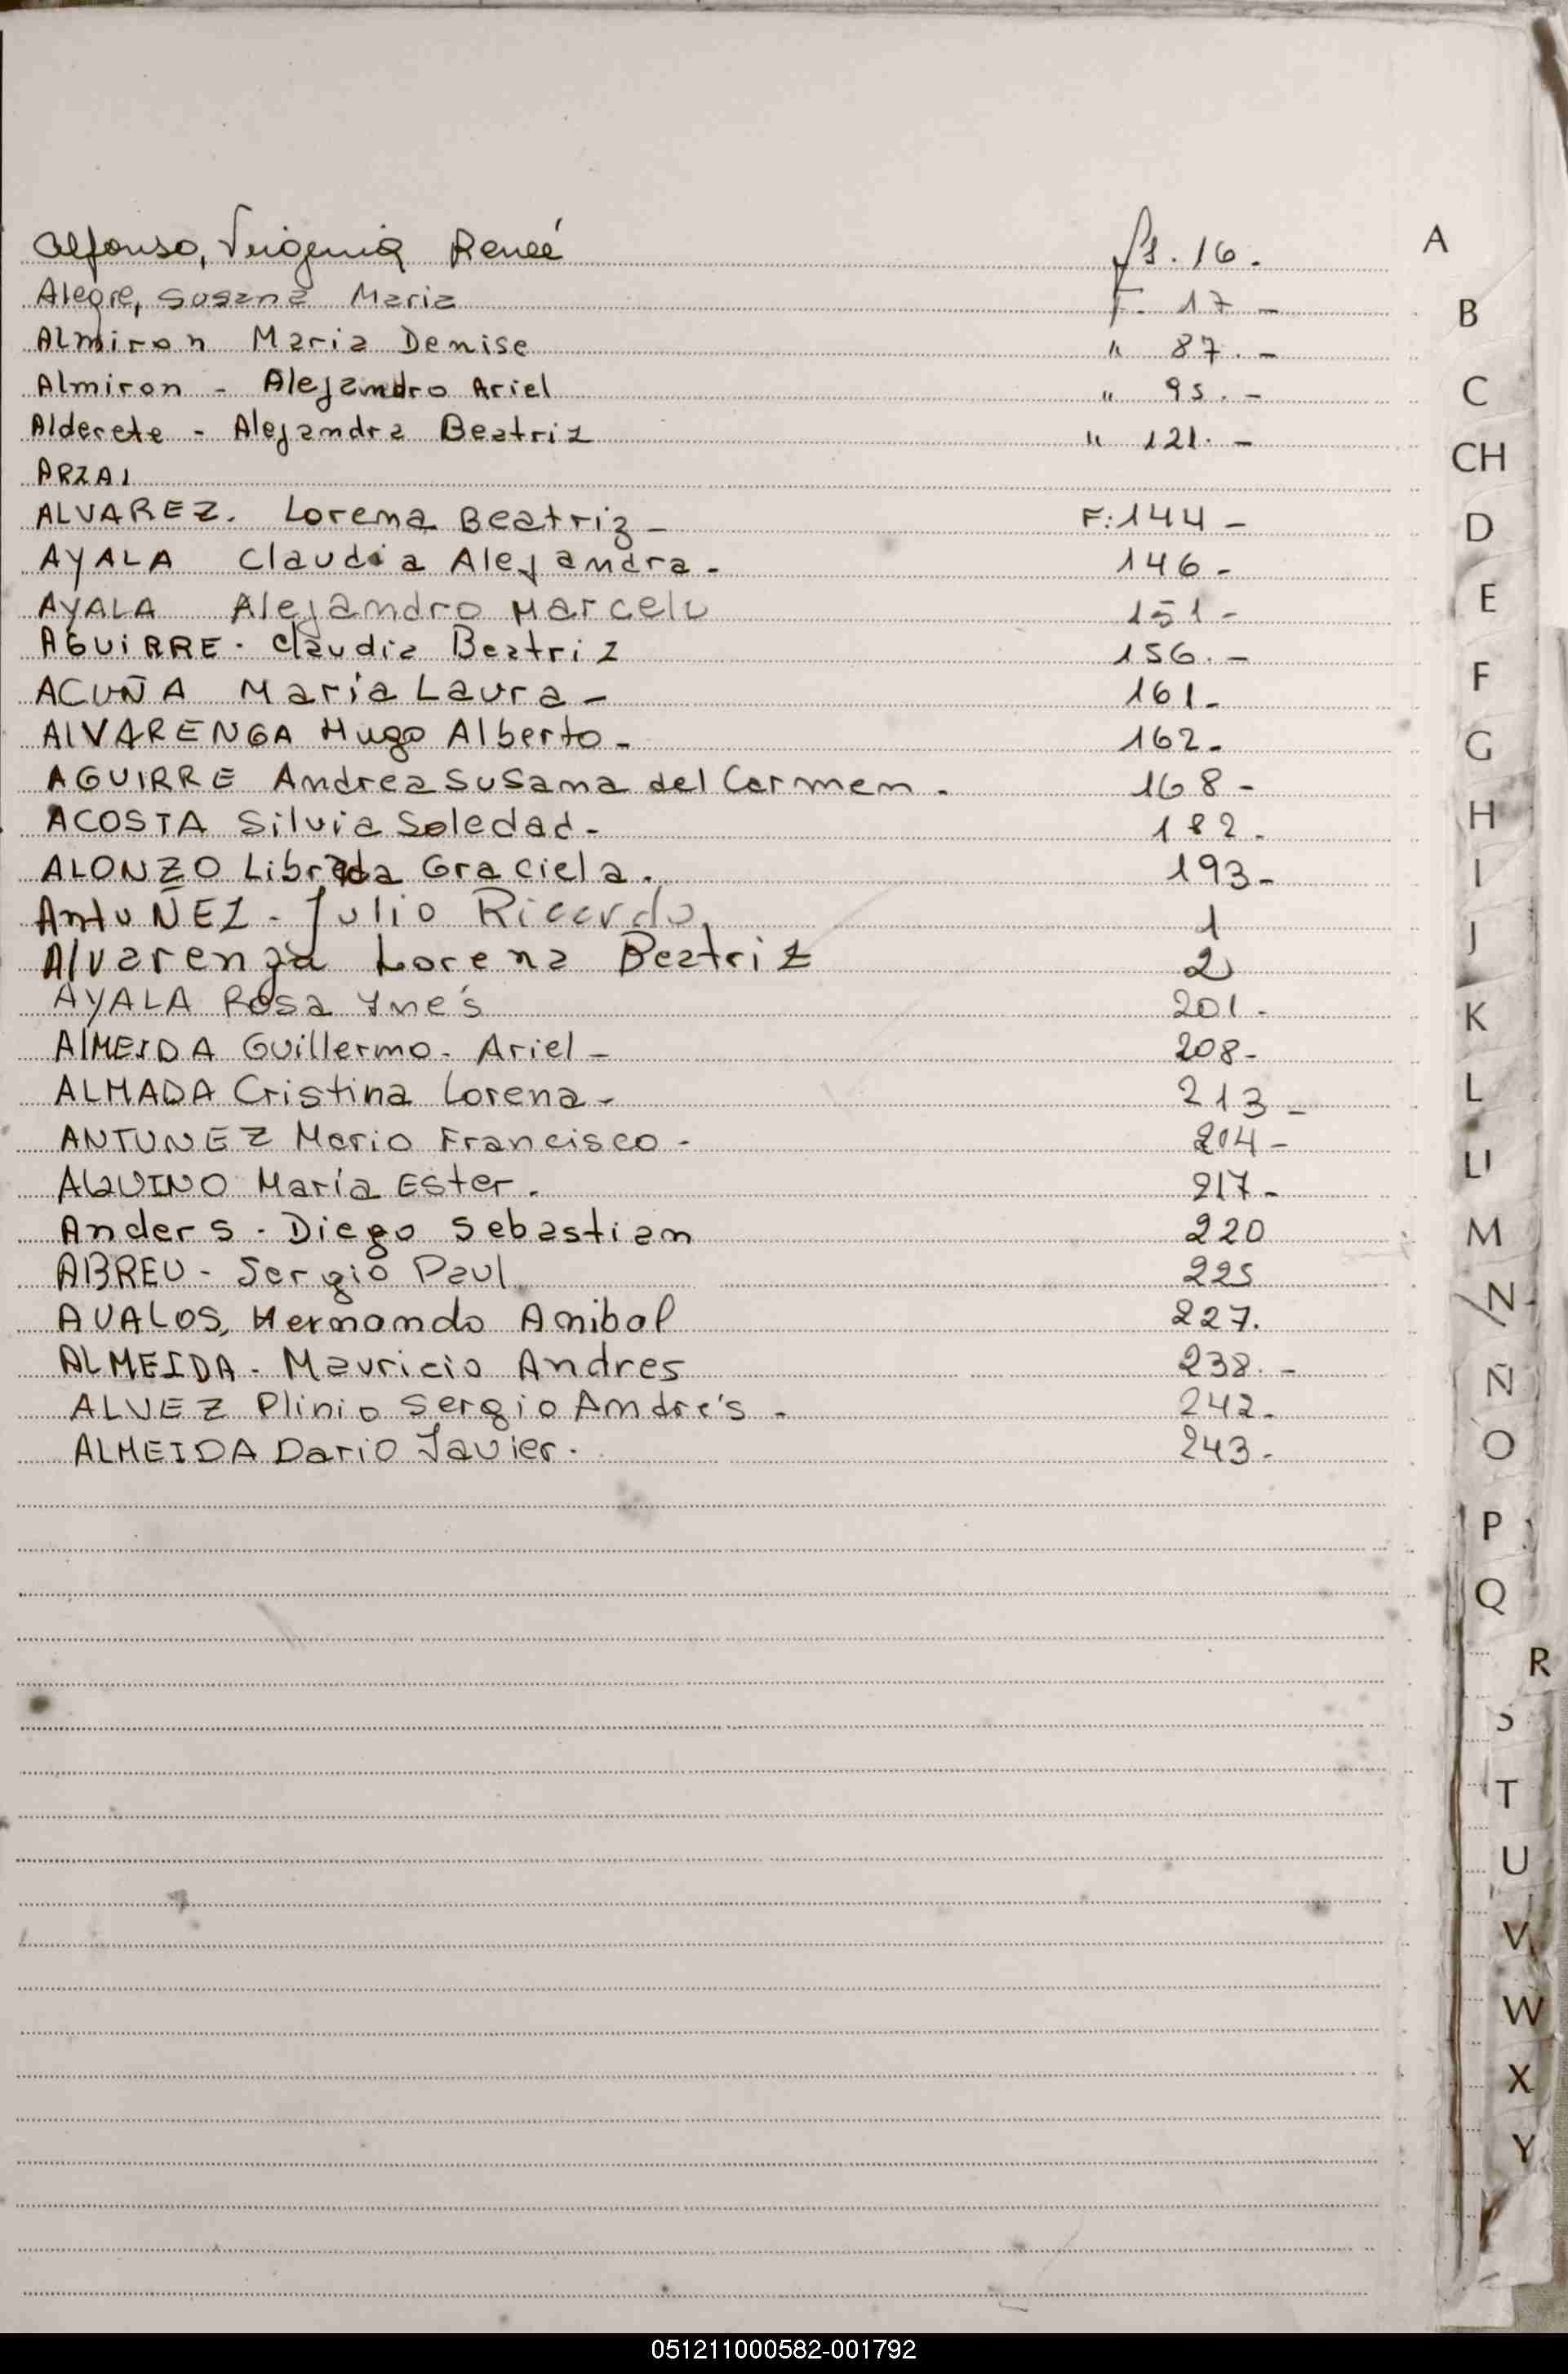 Alfonso, Virginia Reneé fs. 16.
Alegre, Susana Maria F. 17 -
Almiron Maria Denise " 87. -
Almiron - Alejandro Ariel " 95. -
Alderete - Alejandra Beatriz " 121. -
ARZAI
ALVAREZ. Lorena Beatriz - F: 144 -
AYALA Claudia Alejandra. 146 -
AYALA Alejandro Marcelo 151 -
AGUIRRE. Claudia Beatriz 156. -
ACUÑA María Laura - 161 -
AlVARENGA Hugo Alberto - 162 -
AGUIRRE Andrea Susana del Carmen. 168 -
ACOSTA Silvia Soledad - 182 -
ALONZO Librada Graciela. 193 -
AntuÑEZ - Julio Ricardo 1
Alvarenga Lorena Beatriz 2
AYALA Rosa Ynés 201 -
AlMEIDA Guillermo. Ariel - 208 -
ALMADA Cristina Lorena - 213 -
ANTUNEZ Mario Francisco - 214 -
AQUINO María Ester. 217 -
Anders - Diego Sebastian 220
ABREU - Sergio Paul 225
AVALOS, Hernando Anibal 227.
ALMEIDA - Mauricio Andres 238. -
ALVEZ Plinio Sergio Andrés - 242 -
ALMEIDA Dario Javier. 243 -
A
B
C
CH
D
E
F
G
H
I
J
K
L
Ll
M
N
Ñ
O
P
Q
R
S
T
U
V
W
X
Y
051211000582-001792